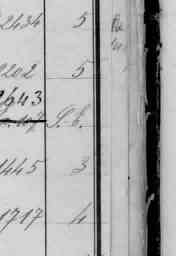 2434 5
2202 5
2643
S. b.
1445 3
1717 4